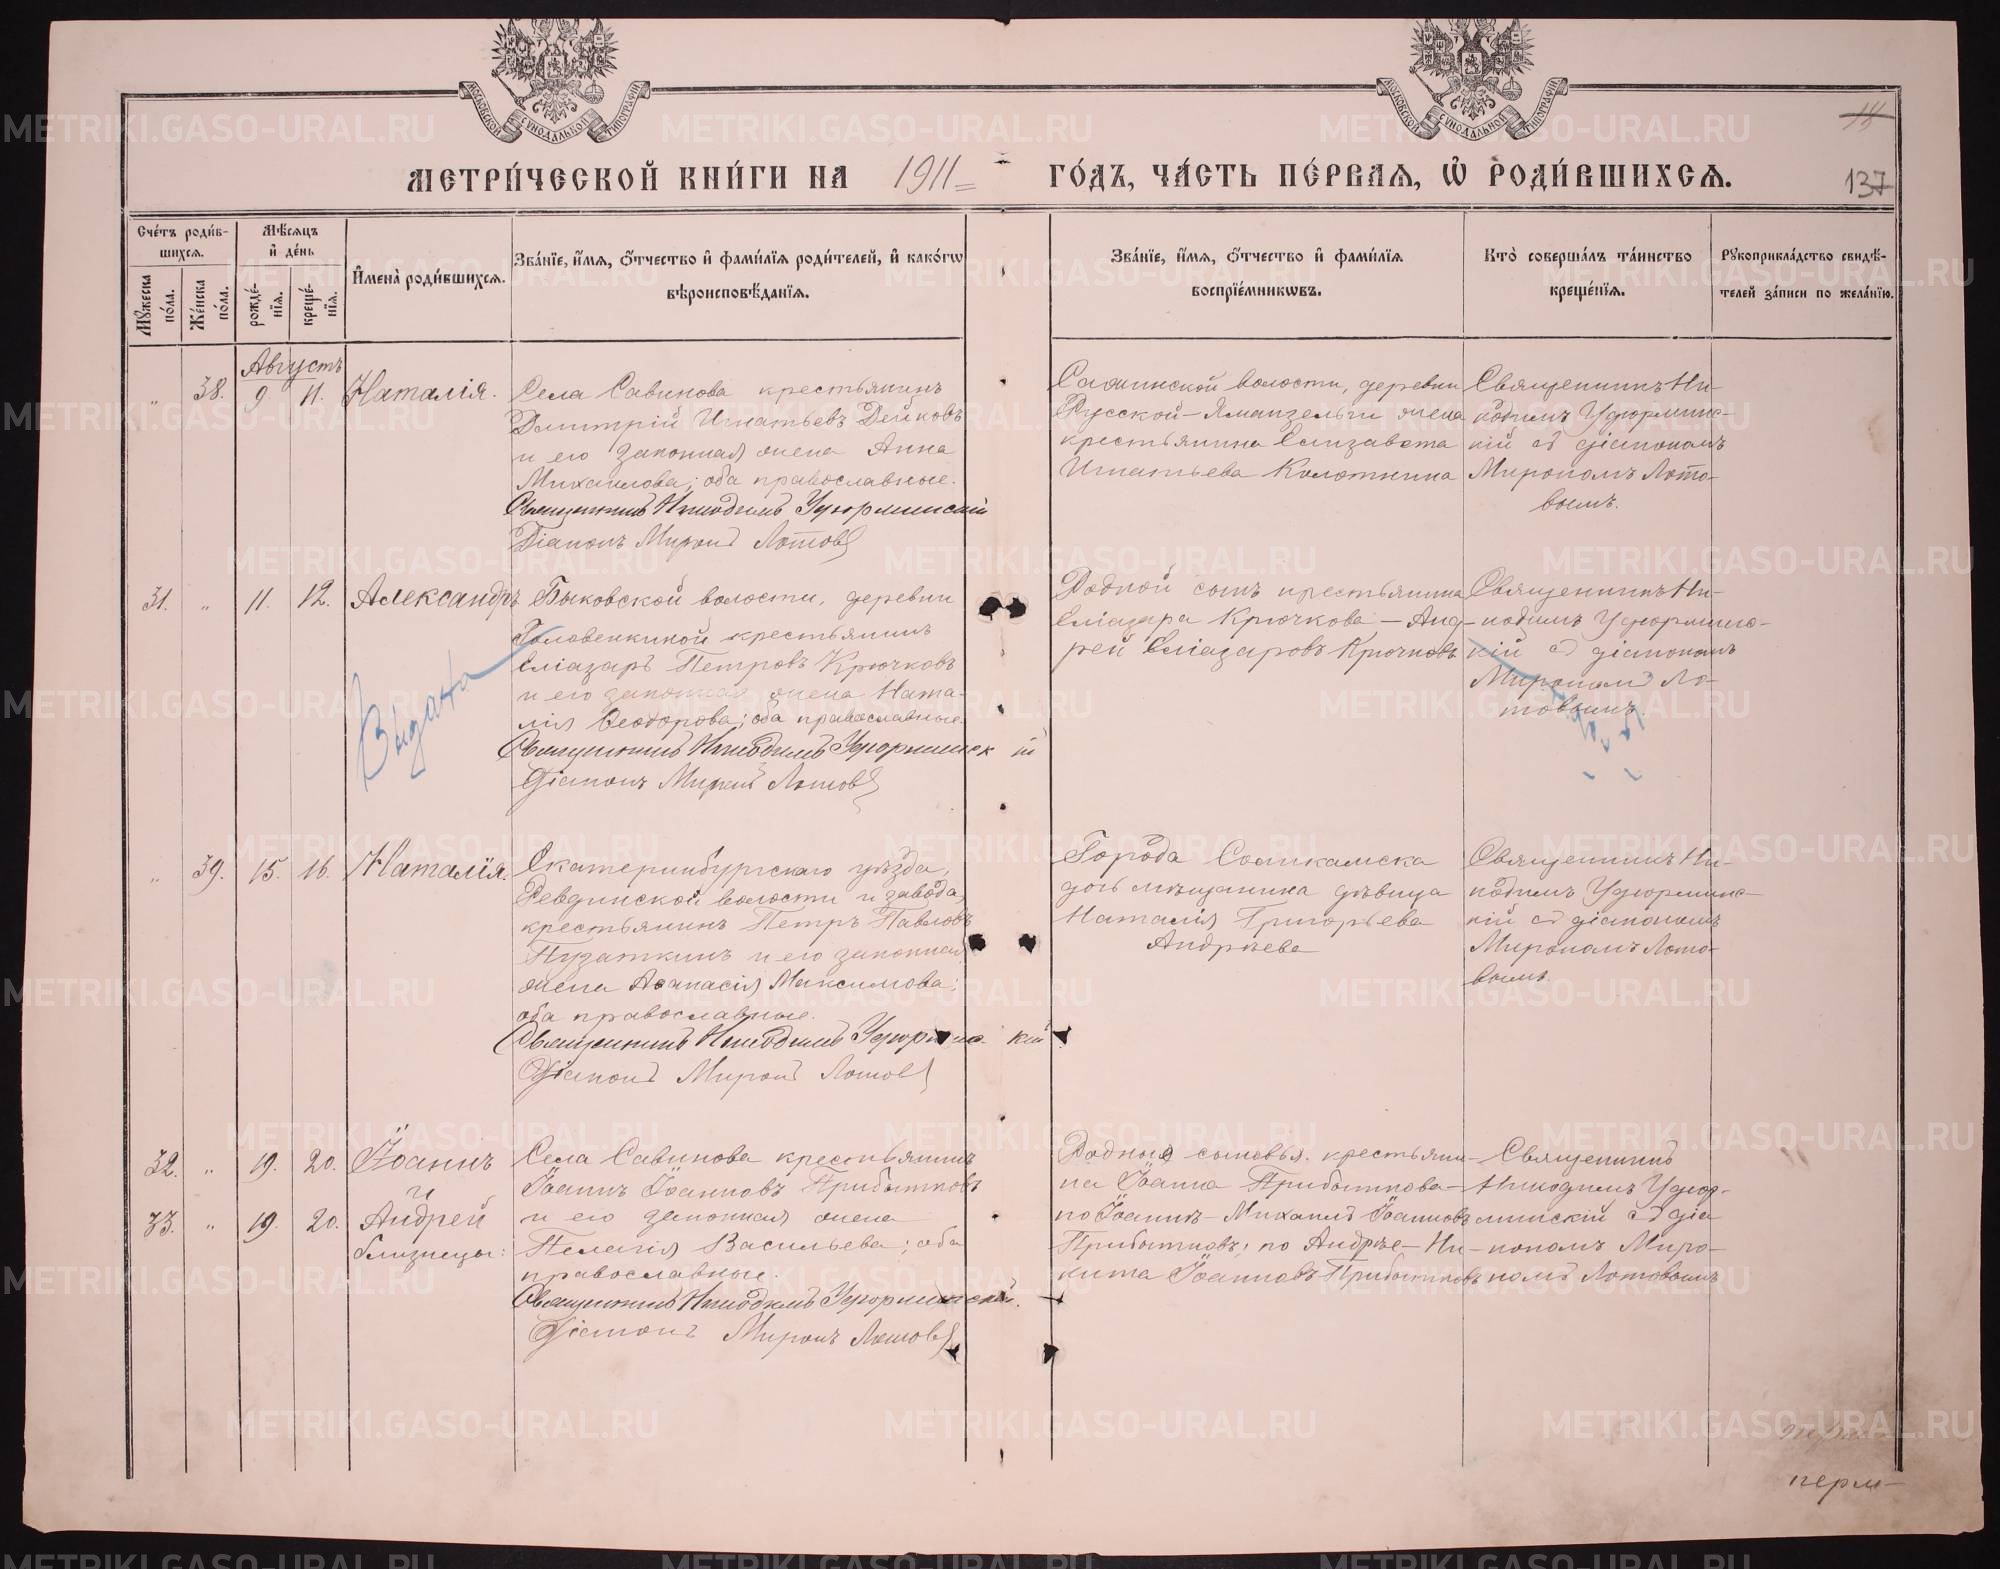 МОСКОВСКОЙ СѴНОДАЛЬНОЙ ТИПОГРАФІИ
МОСКОВСКОЙ СѴНОДАЛЬНОЙ ТИПОГРАФІИ
14
МЕТРИ́ЧЕСКОЙ КНИ́ГИ НА 1911 ГО́ДЪ, ЧА́СТЬ ПЕ́РВАѦ, Ѡ РОДИ́ВШИХСѦ.
137
Сче́тъ роди́в-
шихсѧ.
Мꙋжеска по́ла.
Же́нска пола.
Мѣ́сѧцъ
и҆ де́нь
рожде́-
нїѧ.
креще́-
нїѧ.
И҆мена̀ роди́вшихсѧ.
Зва́нїе, и҆́мѧ, ѻ҆́тчество и҆ фами́лїѧ роди́телей, и҆ како́гѡ
вѣроисповѣ́данїѧ.
Зва́нїе, и҆́мѧ, ѻ҆́тчество и҆ фами́лїѧ
воспрїе́мникѡвъ.
Кто̀ соверша́лъ та́инство
креще́нїѧ.
Рꙋкоприкла́дство свидѣ́-
телей за́писи по жела́нїю.
Августъ
„ 38. 9. 11. Наталія.
Села Савинова крестьянинъ
Дмитрій Игнатьевъ Дейковъ
и его законная жена Анна
Михаилова; оба православные.
Священникъ Никодимъ Удюрминскій
Діаконъ Миронъ Лотовъ
Сажинской волости, деревни
Русской-Яманзельги жена
крестьянина Елизавета
Игнатьева Колоткина
Священникъ Ни-
кодимъ Удюрминс-
кій съ діакономъ
Мирономъ Лото-
вымъ.
31. „ 11. 12. Александръ
Быковской волости, деревни
Головенкиной крестьянинъ
Еліазаръ Петровъ Крючковъ
и его законная жена Ната-
лія Ѳеодорова; оба православные.
Священникъ Никодимъ Удюрминскій
Діаконъ Миронъ Лотовъ
Родной сынъ крестьянина
Еліазара Крючкова - Анд-
рей Еліазаровъ Крючковъ
Священникъ Ни-
кодимъ Удюрминс-
кій съ діакономъ
Мирономъ Ло-
товымъ.
Выдана
„ 39. 15. 16. Наталія.
Екатеринбургскаго уѣзда,
Ревдинской волости и завода
крестьянинъ Петръ Павловъ
Пузаткинъ и его законная
жена Аѳанасія Максимова;
оба православные.
Священникъ Никодимъ Удюрминскій
Діаконъ Миронъ Лотовъ
Города Соликамска
дочь мѣщанина дѣвица
Наталія Григорьева
Андрѣева
Священникъ Ни-
кодимъ Удюрминс-
кій съ діакономъ
Мирономъ Лото-
вымъ.
32. „ 19. 20. Іоаннъ
и
33. „ 19. 20. Андрей
близнецы:
Села Савинова крестьянинъ
Іоаннъ Іоанновъ Прибытковъ
и его законная жена
Пелагія Васильева; оба
православные.
Священникъ Никодимъ Удюрминскій.
Діаконъ Миронъ Лотовъ
Родные сыновья крестьяни-
на Іоанна Прибыткова -
по Іоаннѣ - Михаилъ Іоанновъ
Прибытковъ; по Андрѣе - Ни-
кита Іоанновъ Прибытковъ
Священникъ
Никодимъ Удюр-
минскій съ діа
кономъ Миро-
номъ Лотовымъ
перм-